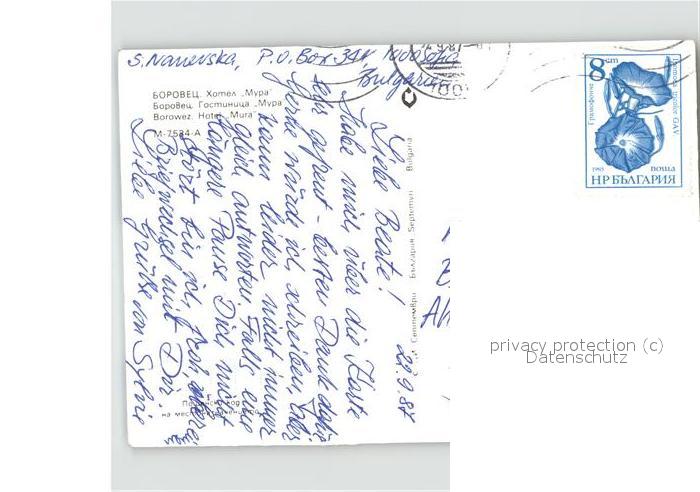 S. Nanevska, P.O. Box 341, 1000 Sofia
Bulgarien
БОРОВЕЦ. Хотел „Мура"
Боровец. Гостиница „Мура"
Borowez. Hotel „Mura"
M-7584-A
22.9.87
Liebe Beate!
Habe mich über die Karte
sehr gefreut - besten Dank dafür
Gerne würde ich schreiben, aber
kann leider nicht immer
gleich antworten. Falls eine
längere Pause Dich nicht
stört bin ich
Briefwechsel mit Dir.
Liebe Grüße von Sylvie
Септември България Septemvri Bulgaria
на местоназначението
8 ст
Грамофонче
Ipomea tricolor CAV
1985
поща
НР БЪЛГАРИЯ
privacy protection (c)
Datenschutz